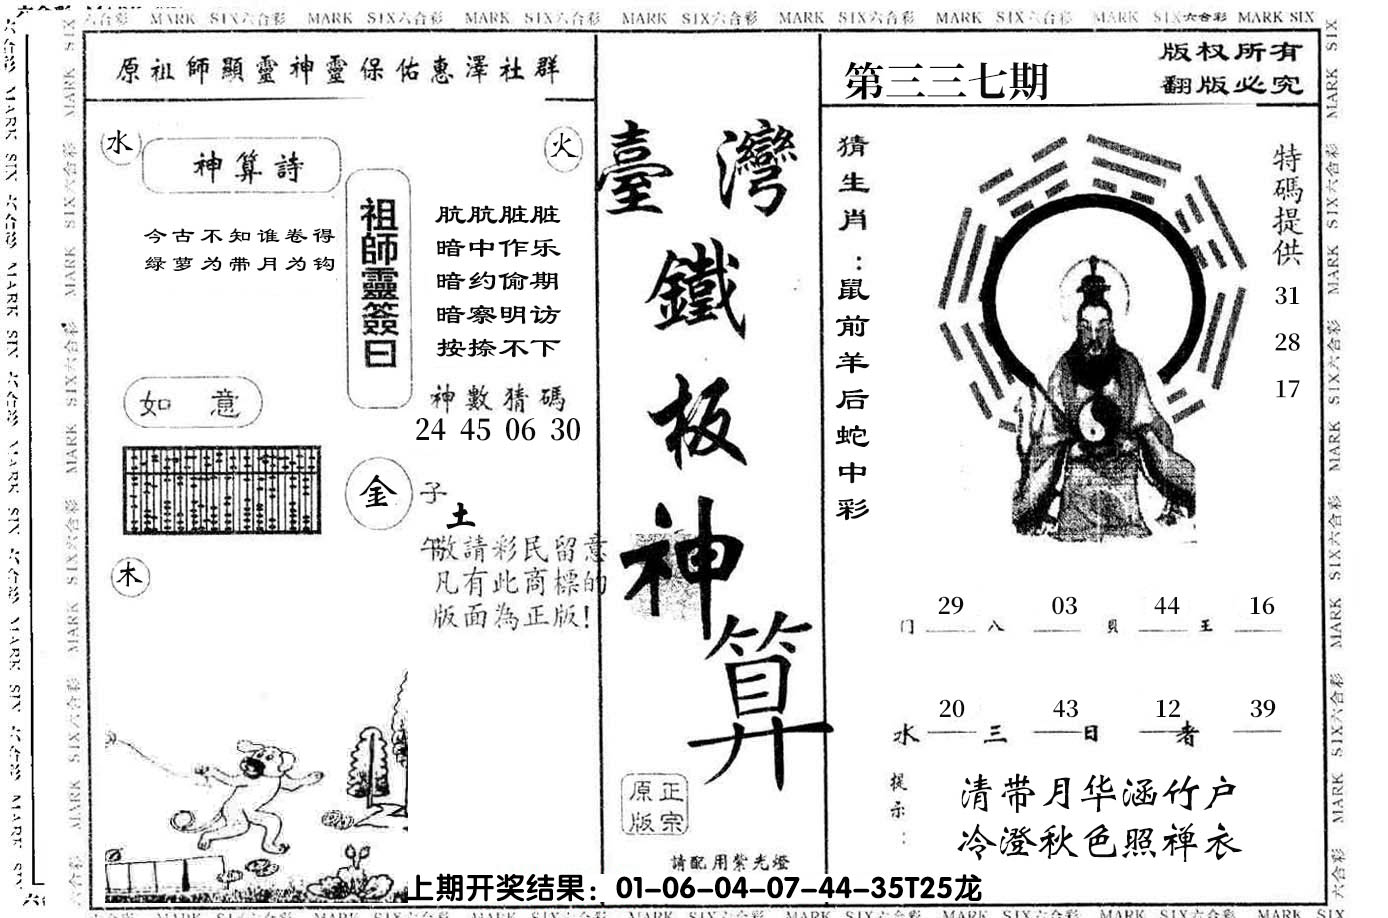 MARK SIX六合彩 MARK SIX六合彩 MARK SIX六合彩 MARK SIX六合彩 MARK SIX六合彩 MARK SIX六合彩 MARK SIX六合彩 MARK SIX
原祖師顯靈神靈保佑惠澤社群
水
神算詩
火
今古不知谁卷得
绿萝为带月为钩
祖師靈簽曰
肮肮脏脏
暗中作乐
暗约偷期
暗察明访
按捺不下
神數猜碼
24 45 06 30
如意
金
子
土
午
敬請彩民留意
凡有此商標的
版面為正版!
木
臺灣
鐵
板
神
算
正宗
原版
請配用紫光燈
第三三七期
版权所有
翻版必究
猜生肖:鼠前羊后蛇中彩
特碼提供
31
28
17
29 03 44 16
门 八 貝 王
20 43 12 39
水 三 日 者
提示:
清带月华涵竹户
冷澄秋色照禅衣
上期开奖结果：01-06-04-07-44-35T25龙